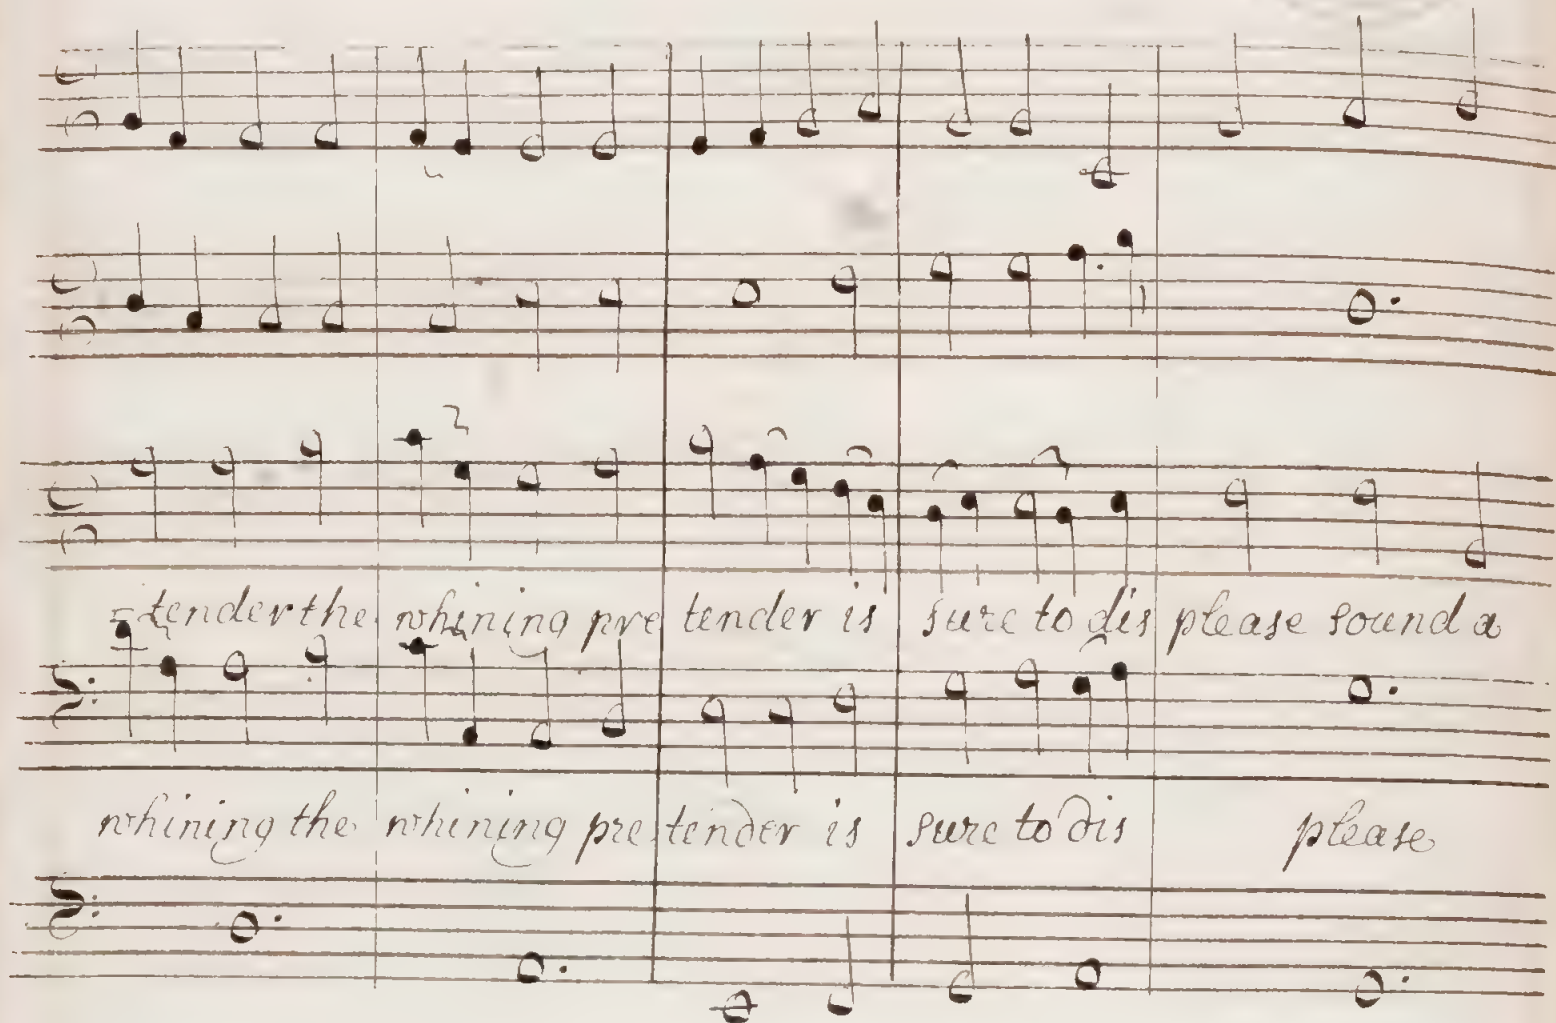 =tender the whining pre tender is sure to dis please sound a
whining the whining pre tender is sure to dis please